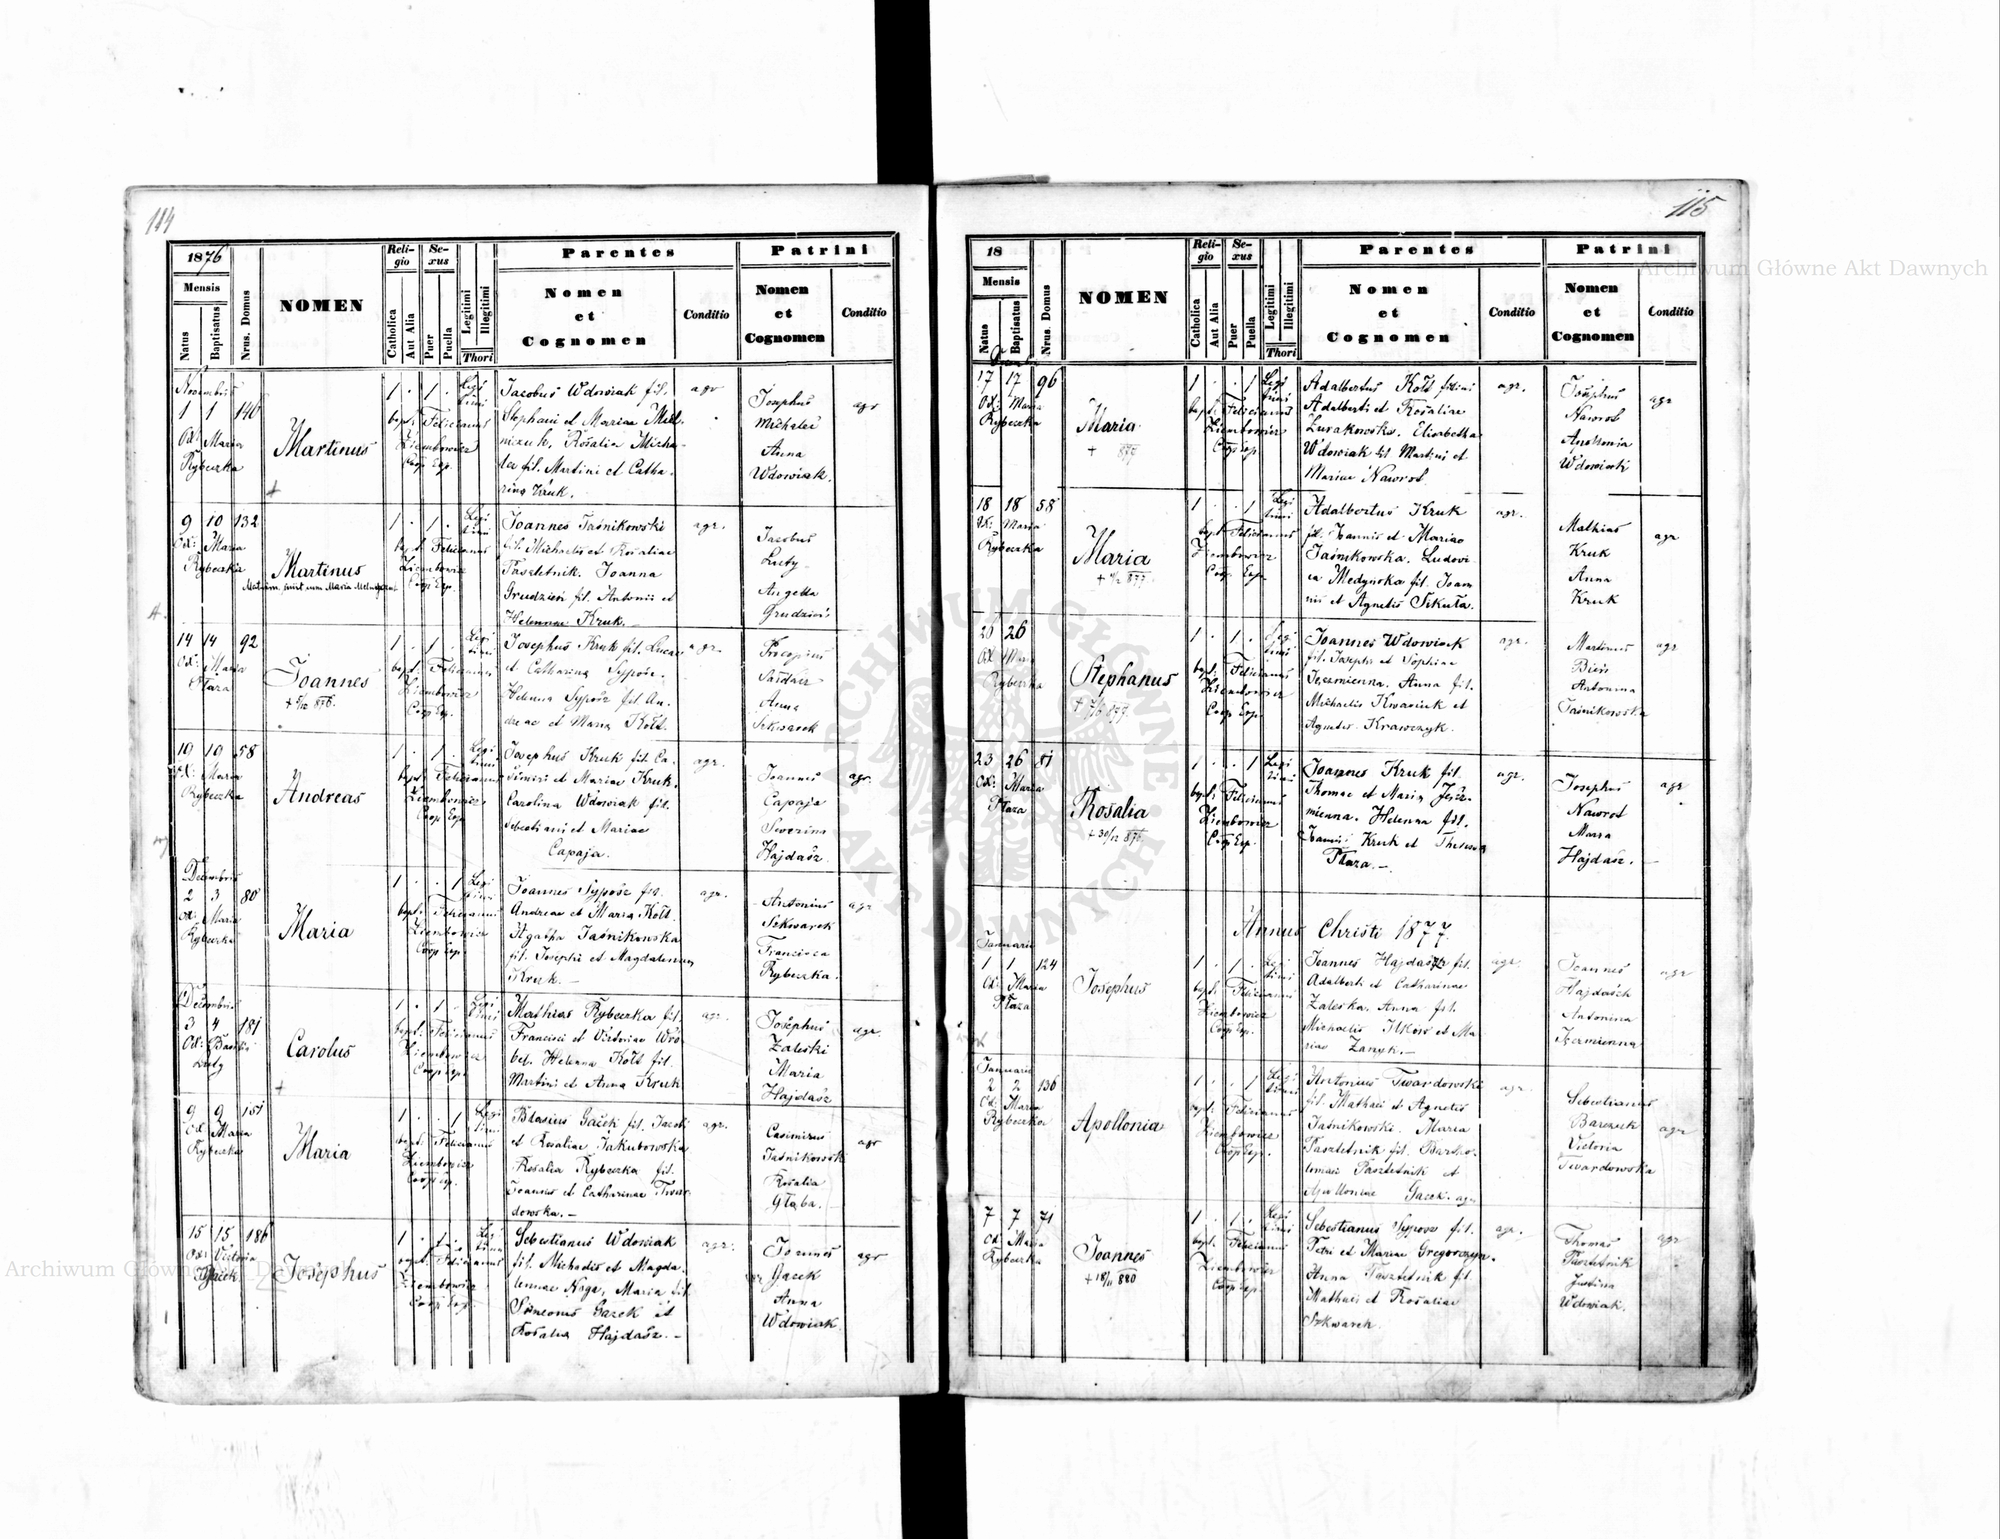 114
1876
Mensis
Natus
Baptisatus
Nrus. Domus
NOMEN
Religio
Catholica
Aut Alia
Sexus
Puer
Puella
Legitimi
Illegitimi
Thori
Parentes
Nomen
et
Cognomen
Conditio
Patrini
Nomen
et
Cognomen
Conditio
Novembris
1 1 140
Od: Maria
Rybeczka
Martinus
1 . 1 . Legi
timi
bapt: Felicianus
Ziembowicz
Coop Exp.
Jacobus Wdowiak fil.
Stephani et Mariae
Rosalia Micha
fil. Martini et Catha
rina Kruk.
agr
Josephus
Michalec
Anna
Wdowiak.
agr
9 10 132
Od: Maria
Rybeczka
Martinus
1 . 1 . Legi
timi
bapt: Felicianus
Ziembowicz
Coop Exp.
Joannes Jaśnikowski
fil. Michaelis et Rosaliae
Pasztetnik. Joanna
Grudzień fil. Antonii et
Helennae Kruk.
agr.
Jacobus
Luty
Angella
Grudzień
14 14 92
Od: Maria
Płaza
Joannes
1 . 1 . Legi
timi
bapt: Felicianus
Ziembowicz
Coop Exp.
Josephus Kruk fil. Lucae
et Catharina Sypość.
Helenna Sypość fil. An
dreae et Maria Kołt.
agr.
Procopius
Anna
Szkwarek
19 19 58
Od: Maria
Rybeczka
Andreas
1 . 1 . Legi
timi
bapt: Felicianus
Ziembowicz
Coop Exp
Josephus Kruk fil. Ca
simiri et Mariae Kruk.
Carolina Wdowiak fil.
Sebastiani et Mariae
Capaja.
agr.
Joannes
Capaja
Severina
Hajdasz.
agr.
Decembris
2 3 80
Od: Maria
Rybeczka
Maria
1 . . 1 Legi
timi
bapt: Felicianus
Ziembowicz
Coop Exp.
Joannes Sypość fil.
Andreae et Maria Kołt.
Agatha Jaśnikowska
fil. Josephi et Magdalennae
Kruk.
agr.
Antonius
Szkwarek
Francisca
Rybeczka.
agr
Decembris
3 4 181
Od:
Luty
Carolus
1 . 1 . Legi
timi
bapt: Felicianus
Ziembowicz
Coop Exp.
Mathias Rybeczka fil.
Francisci et Victoriae Wró
bel. Helenna Kołt fil.
Martini et Anna Kruk
agr.
Josephus
Zaleski
Maria
Hajdasz
agr.
9 9 151
Od: Maria
Rybeczka
Maria
1 . . 1 Legi
timi
bapt: Felicianus
Ziembowicz
Coop Exp.
Blasius Gacek fil. Jacobi
et Rosaliae Jakubowska
Rosalia Rybeczka fil.
Joannis et Catharinae Twar
dowska.
agr.
Casimirus
Jaśnikowski
Rosalia
Głąba.
agr
15 15 186
Od: Victoria
Gacek
Josephus
1 . 1 . Legi
timi
bapt: Felicianus
Ziembowicz
Coop Exp.
Sebastianus Wdowiak
fil. Michaelis et Magda
lennae Noga, Maria fil.
Simeonis Gacek et
Rosalia Hajdasz.
agr.
Joannes
Gacek
Anna
Wdowiak
agr
115
18
Mensis
Natus
Baptisatus
Nrus. Domus
NOMEN
Religio
Catholica
Aut Alia
Sexus
Puer
Puella
Legitimi
Illegitimi
Thori
Parentes
Nomen
et
Cognomen
Conditio
Patrini
Nomen
et
Cognomen
Conditio
17 17 96
Od: Maria
Rybeczka
Maria
1 . . 1 Legi
timi
bapt: Felicianus
Ziembowicz
Coop Exp
Adalbertus Kołt filius
Adalberti et Rosaliae
Żurakowska. Elisabetha
Wdowiak fil Martini et
Mariae Nawrot.
agr.
Josephus
Nawrot
Antonia
Wdowiak
agr
18 18 58
Od: Maria
Rybeczka
Maria
1 . . 1 Legi
timi
bapt: Felicianus
Ziembowicz
Coop Exp.
Adalbertus Kruk
fil. Joannis et Mariae
Jaśnikowska. Ludovi
ca Medyńska fil. Joan
nis et Agnetis Sikuła.
agr.
Mathias
Kruk
Anna
Kruk
agr
26
Od: Maria
Rybeczka
Stephanus
1 . 1 . Legi
timi
bapt: Felicianus
Ziembowicz
Coop Exp.
Joannes Wdowiak
fil. Josephi et Sophiae
Jęczmienna. Anna fil.
Michaelis Kwaśniak et
Agnetis Krawczyk.
agr.
Martinus
Bień
Antonina
Jaśnikowska
agr
23 26 81
Od: Maria
Płaza
Rosalia
1 . . 1 Legi
timi
bapt: Felicianus
Ziembowicz
Coop Exp.
Joannes Kruk fil.
Thomae et Maria Jęcz
mienna. Helenna fil.
Joannis Kruk et Theresia
Płaza.
agr.
Josephus
Nawrot
Maria
Hajdasz.
agr
Annus Christi 1877.
Januarii
1 1 124
Od: Maria
Płaza
Josephus
1 . 1 . Legi
timi
bapt: Felicianus
Ziembowicz
Coop Exp.
Joannes Hajdasz fil.
Adalberti et Catharinae
Zaleska. Anna fil.
Michaelis Ilkow et Ma
riae Zanyk.
agr.
Joannes
Hajdasch
Antonina
Jęczmienna
agr
Januarii
2 2 136
Od: Maria
Rybeczka
Apollonia
1 . . 1 Legi
timi
bapt: Felicianus
Ziembowicz
Coop Exp.
Antonius Twardowski
fil. Mathaei et Agnetis
Jaśnikowski. Maria
Pasztetnik fil. Bartho
lomaei Pasztetnik et
Apolloniae Gacek. agr
agr.
Sebastianus
Victoria
Twardowska
agr
7 7 71
Od: Maria
Rybeczka
Joannes
1 . 1 . Legi
timi
bapt: Felicianus
Ziembowicz
Coop Exp.
Sebastianus Sypość fil.
Petri et Mariae Gregorczyn.
Anna Pasztetnik fil.
Mathaei et Rosaliae
Szkwarek.
agr.
Thomas
Pasztetnik
Justina
Wdowiak.
agr
Archiwum Główne Akt Dawnych
ARCHIWUM GŁÓWNE AKT DAWNYCH
Archiwum Główne Akt Dawnych